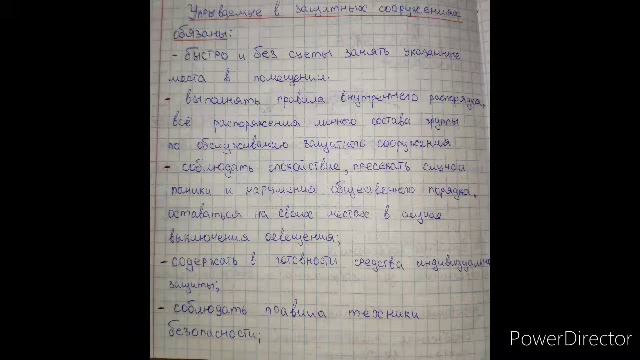 Укрываемые в защитных сооружениях
обязаны:
- быстро и без суеты занять указанные
места в помещении.
- выполнять правила внутреннего распорядка,
всё распоряжения личного состава группы
по обслуживанию защитного сооружения
- соблюдать спокойствие, пресекать случаи
паники и нарушения общественного порядка,
оставаться на своих местах в случае
выключения освещения;
- содержать в готовности средства индивидуально
защиты;
- соблюдать правила техники
безопасности;
PowerDirector